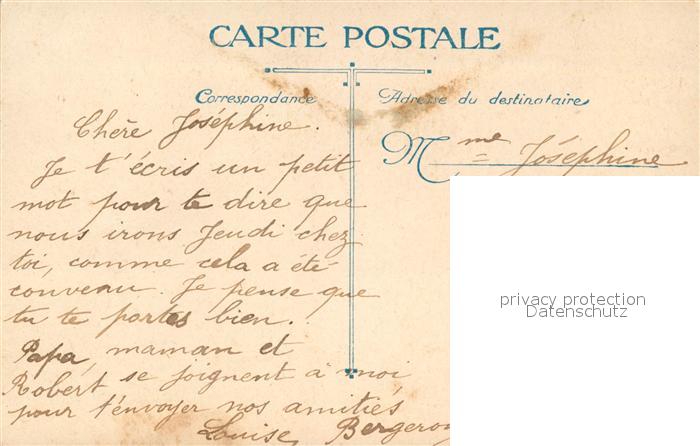 CARTE POSTALE
Correspondance
Adresse du destinataire
Chère Joséphine.
Je t'écris un petit
mot pour te dire que
nous irons Jeudi chez
toi, comme cela a été
convenu. Je pense que
tu te portes bien.
Papa, maman et
Robert se joignent à moi
pour t'envoyer nos amitiés
Louise Bergeron
Mme Joséphine
privacy protection
Datenschutz